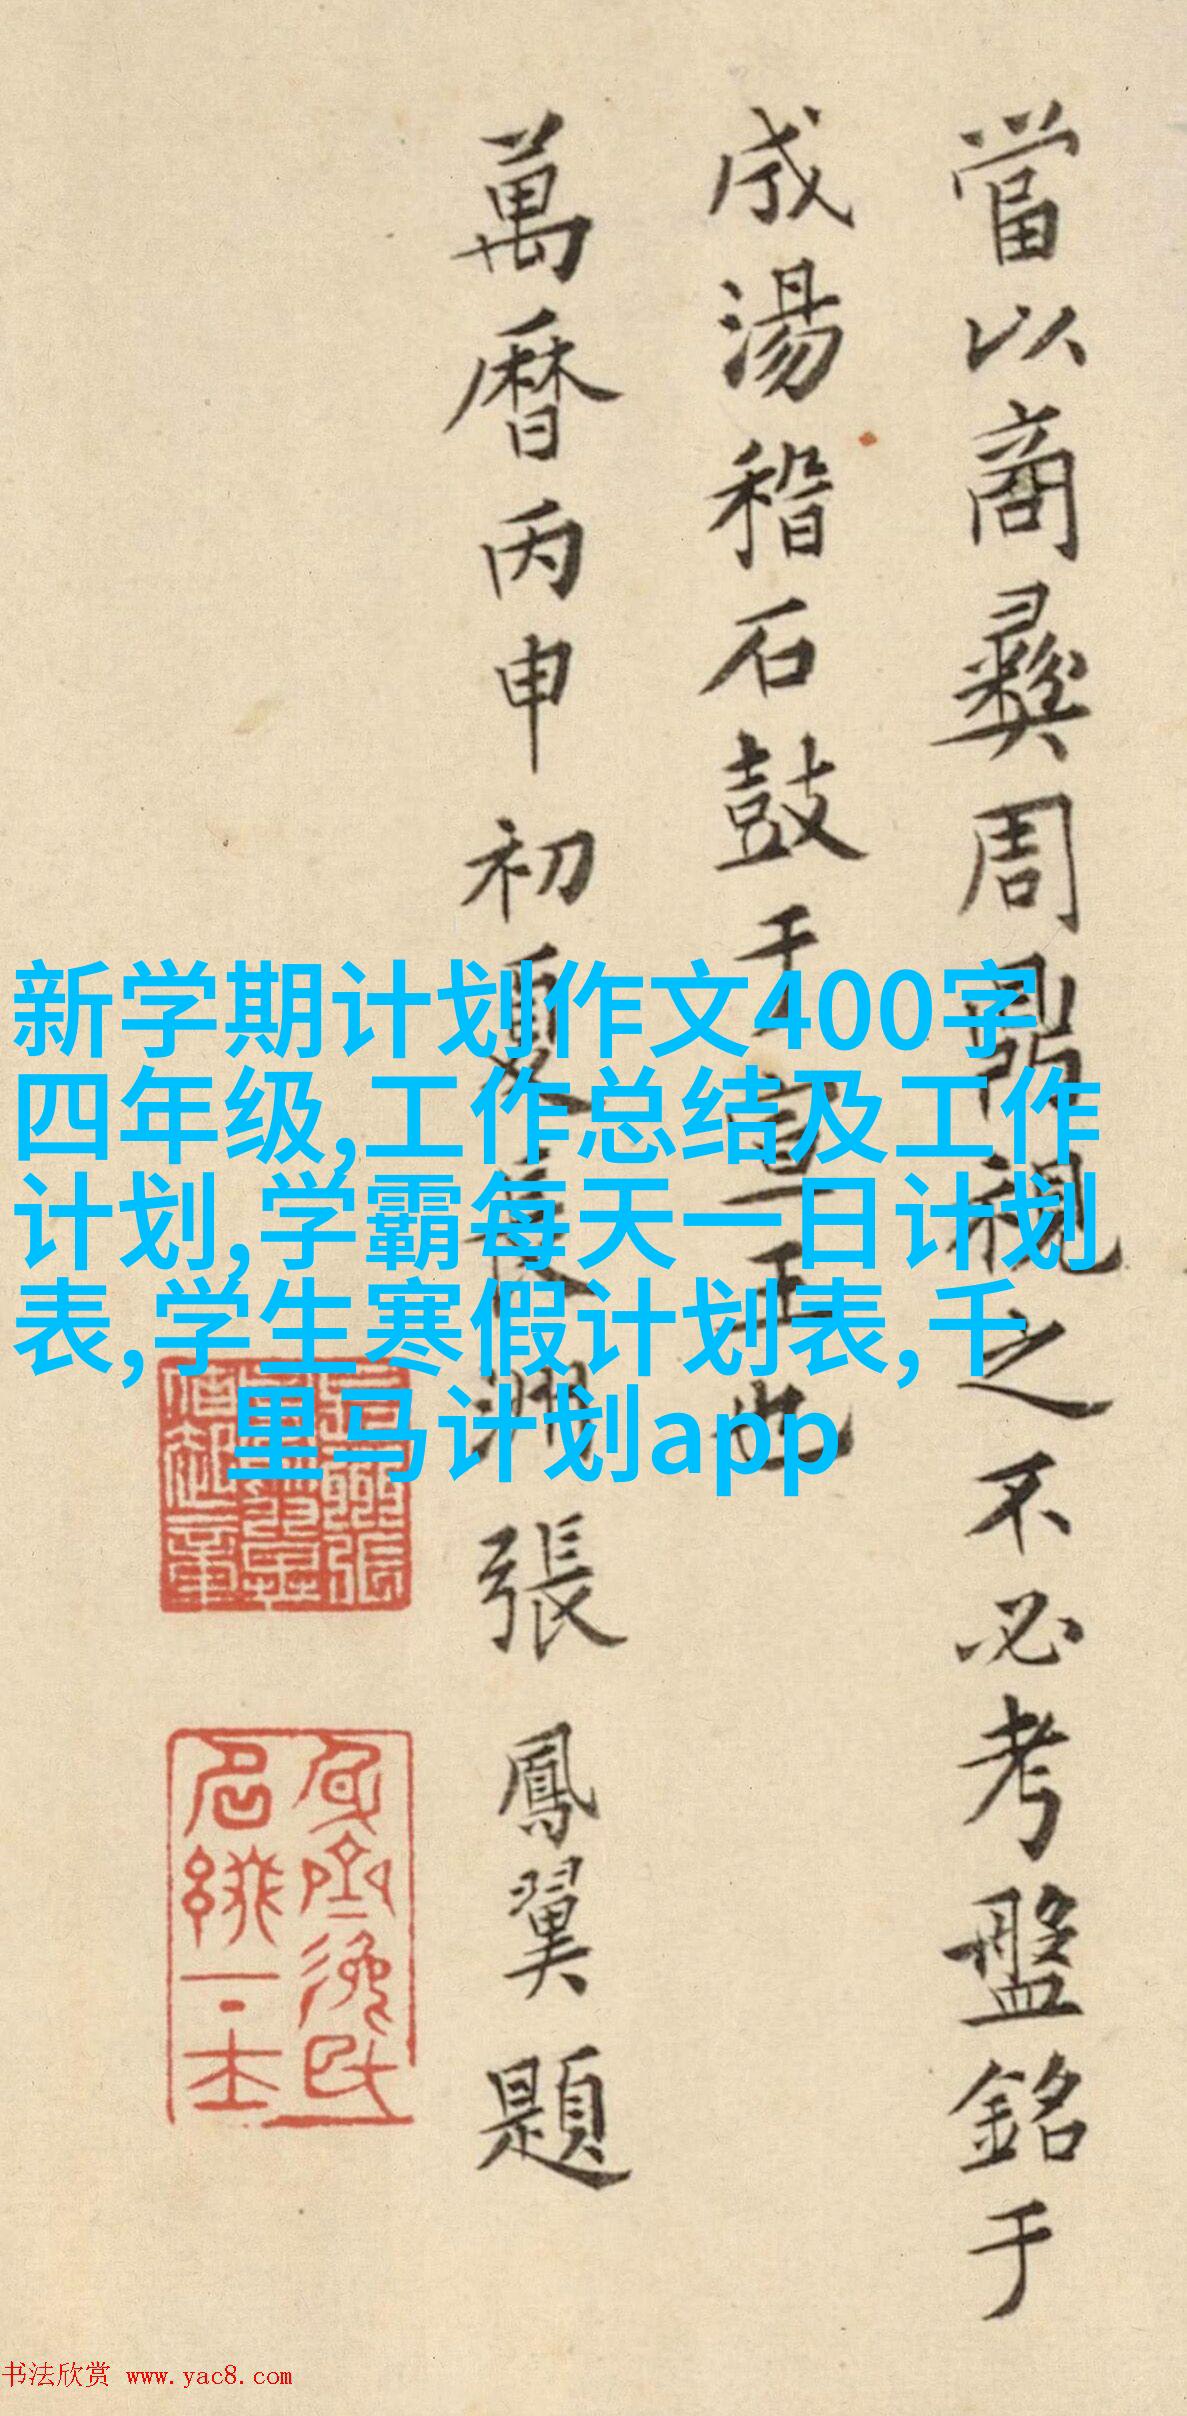 當以商彝周鼎視之不必考盤銘于
成湯稽石鼓于宣王也
萬曆丙申初夏長洲張鳳翼題
新学期计划作文400字
四年级,工作总结及工作
计划,学霸每天一日计划
表,学生寒假计划表,千
里马计划app
书法欣赏 www.yac8.com